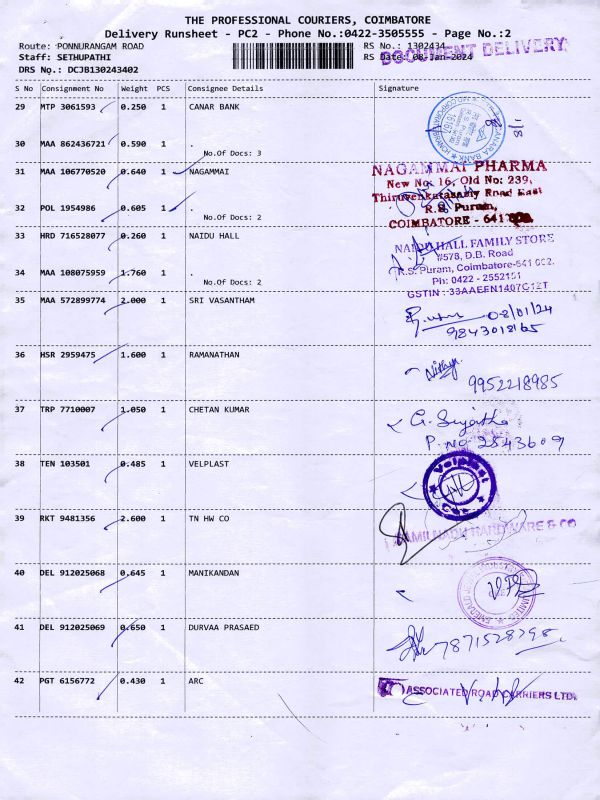 THE PROFESSIONAL COURIERS, COIMBATORE
Delivery Runsheet - PC2 - Phone No.:0422-3505555 - Page No.:2
Route: PONNURANGAM ROAD
RS No.: 1302434
Staff: SETHUPATHI
RS Date: 08-Jan-2024
DOCUMENT DELIVERY
DRS No.: DCJB130243402
S No Consignment No Weight PCS Consignee Details Signature
29 MTP 3061593 0.250 1 CANAR BANK
CANARA BANK
30 MAA 862436721 0.590 1 .
No.Of Docs: 3
31 MAA 106770520 0.640 1 NAGAMMAI
NAGAMMAI PHARMA
New No: 16, Old No: 239,
Thiruvenkatasamy Road East
R.S. Puram,
COIMBATORE - 641
32 POL 1954986 0.605 1 .
No.Of Docs: 2
33 HRD 716528077 0.260 1 NAIDU HALL
NAIDU HALL FAMILY STORE
#578, D.B. Road
R.S. Puram, Coimbatore-641 002.
Ph: 0422 - 2552151
GSTIN : 33AAEEN1407G1ZT
34 MAA 108075959 1.760 1 .
No.Of Docs: 2
35 MAA 572899774 2.000 1 SRI VASANTHAM
08/01/24
9843018165
36 HSR 2959475 1.600 1 RAMANATHAN
9952218985
37 TRP 7710007 1.050 1 CHETAN KUMAR
G. Sujatha
P. no 2543609
38 TEN 103501 0.485 1 VELPLAST
Velplast
39 RKT 9481356 2.600 1 TN HW CO
TAMILNADU HARDWARE & CO
40 DEL 912025068 0.645 1 MANIKANDAN
41 DEL 912025069 0.650 1 DURVAA PRASAED
7871528798.
42 PGT 6156772 0.430 1 ARC
ASSOCIATED ROAD CARRIERS LTD.